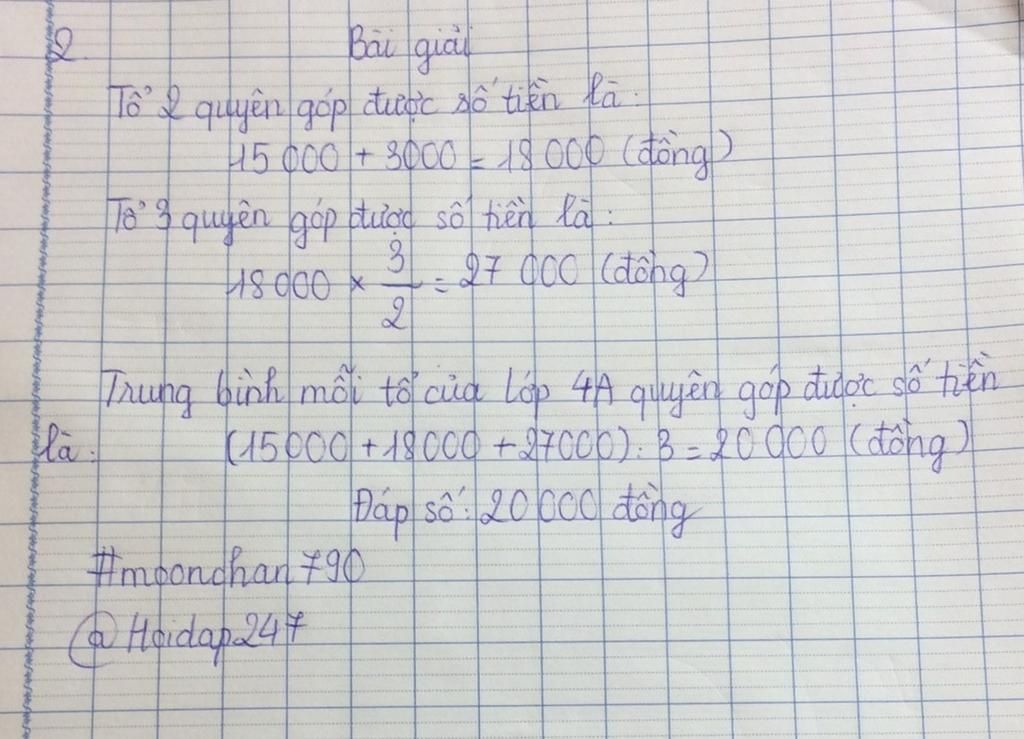 2. Bài giải
Tổ 2 quyên góp được số tiền là:
15 000 + 3000 = 18 000 (đồng)
Tổ 3 quyên góp được số tiền là:
18 000 × 3/2 = 27 000 (đồng)
Trung bình mỗi tổ của lớp 4A quyên góp được số tiền
là: (15000 + 18000 + 27000) : 3 = 20 000 (đồng)
Đáp số: 20 000 đồng
#moonchan790
@Hoidap247